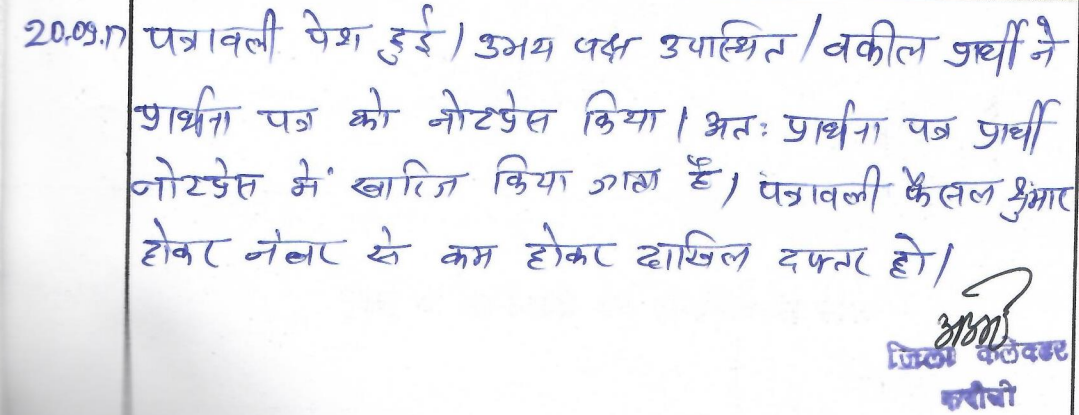 20.09.17 पत्रावली पेश हुई। उभय पक्ष उपास्थित। वकील प्रार्थी ने
प्रार्थना पत्र को नोटप्रेस किया। अतः प्रार्थना पत्र प्रार्थी
नोटप्रेस में खारिज किया जाता है। पत्रावली फैसल शुमार
होकर नंबर से कम होकर दाखिल दफ्तर हो।
जिला कलेक्टर